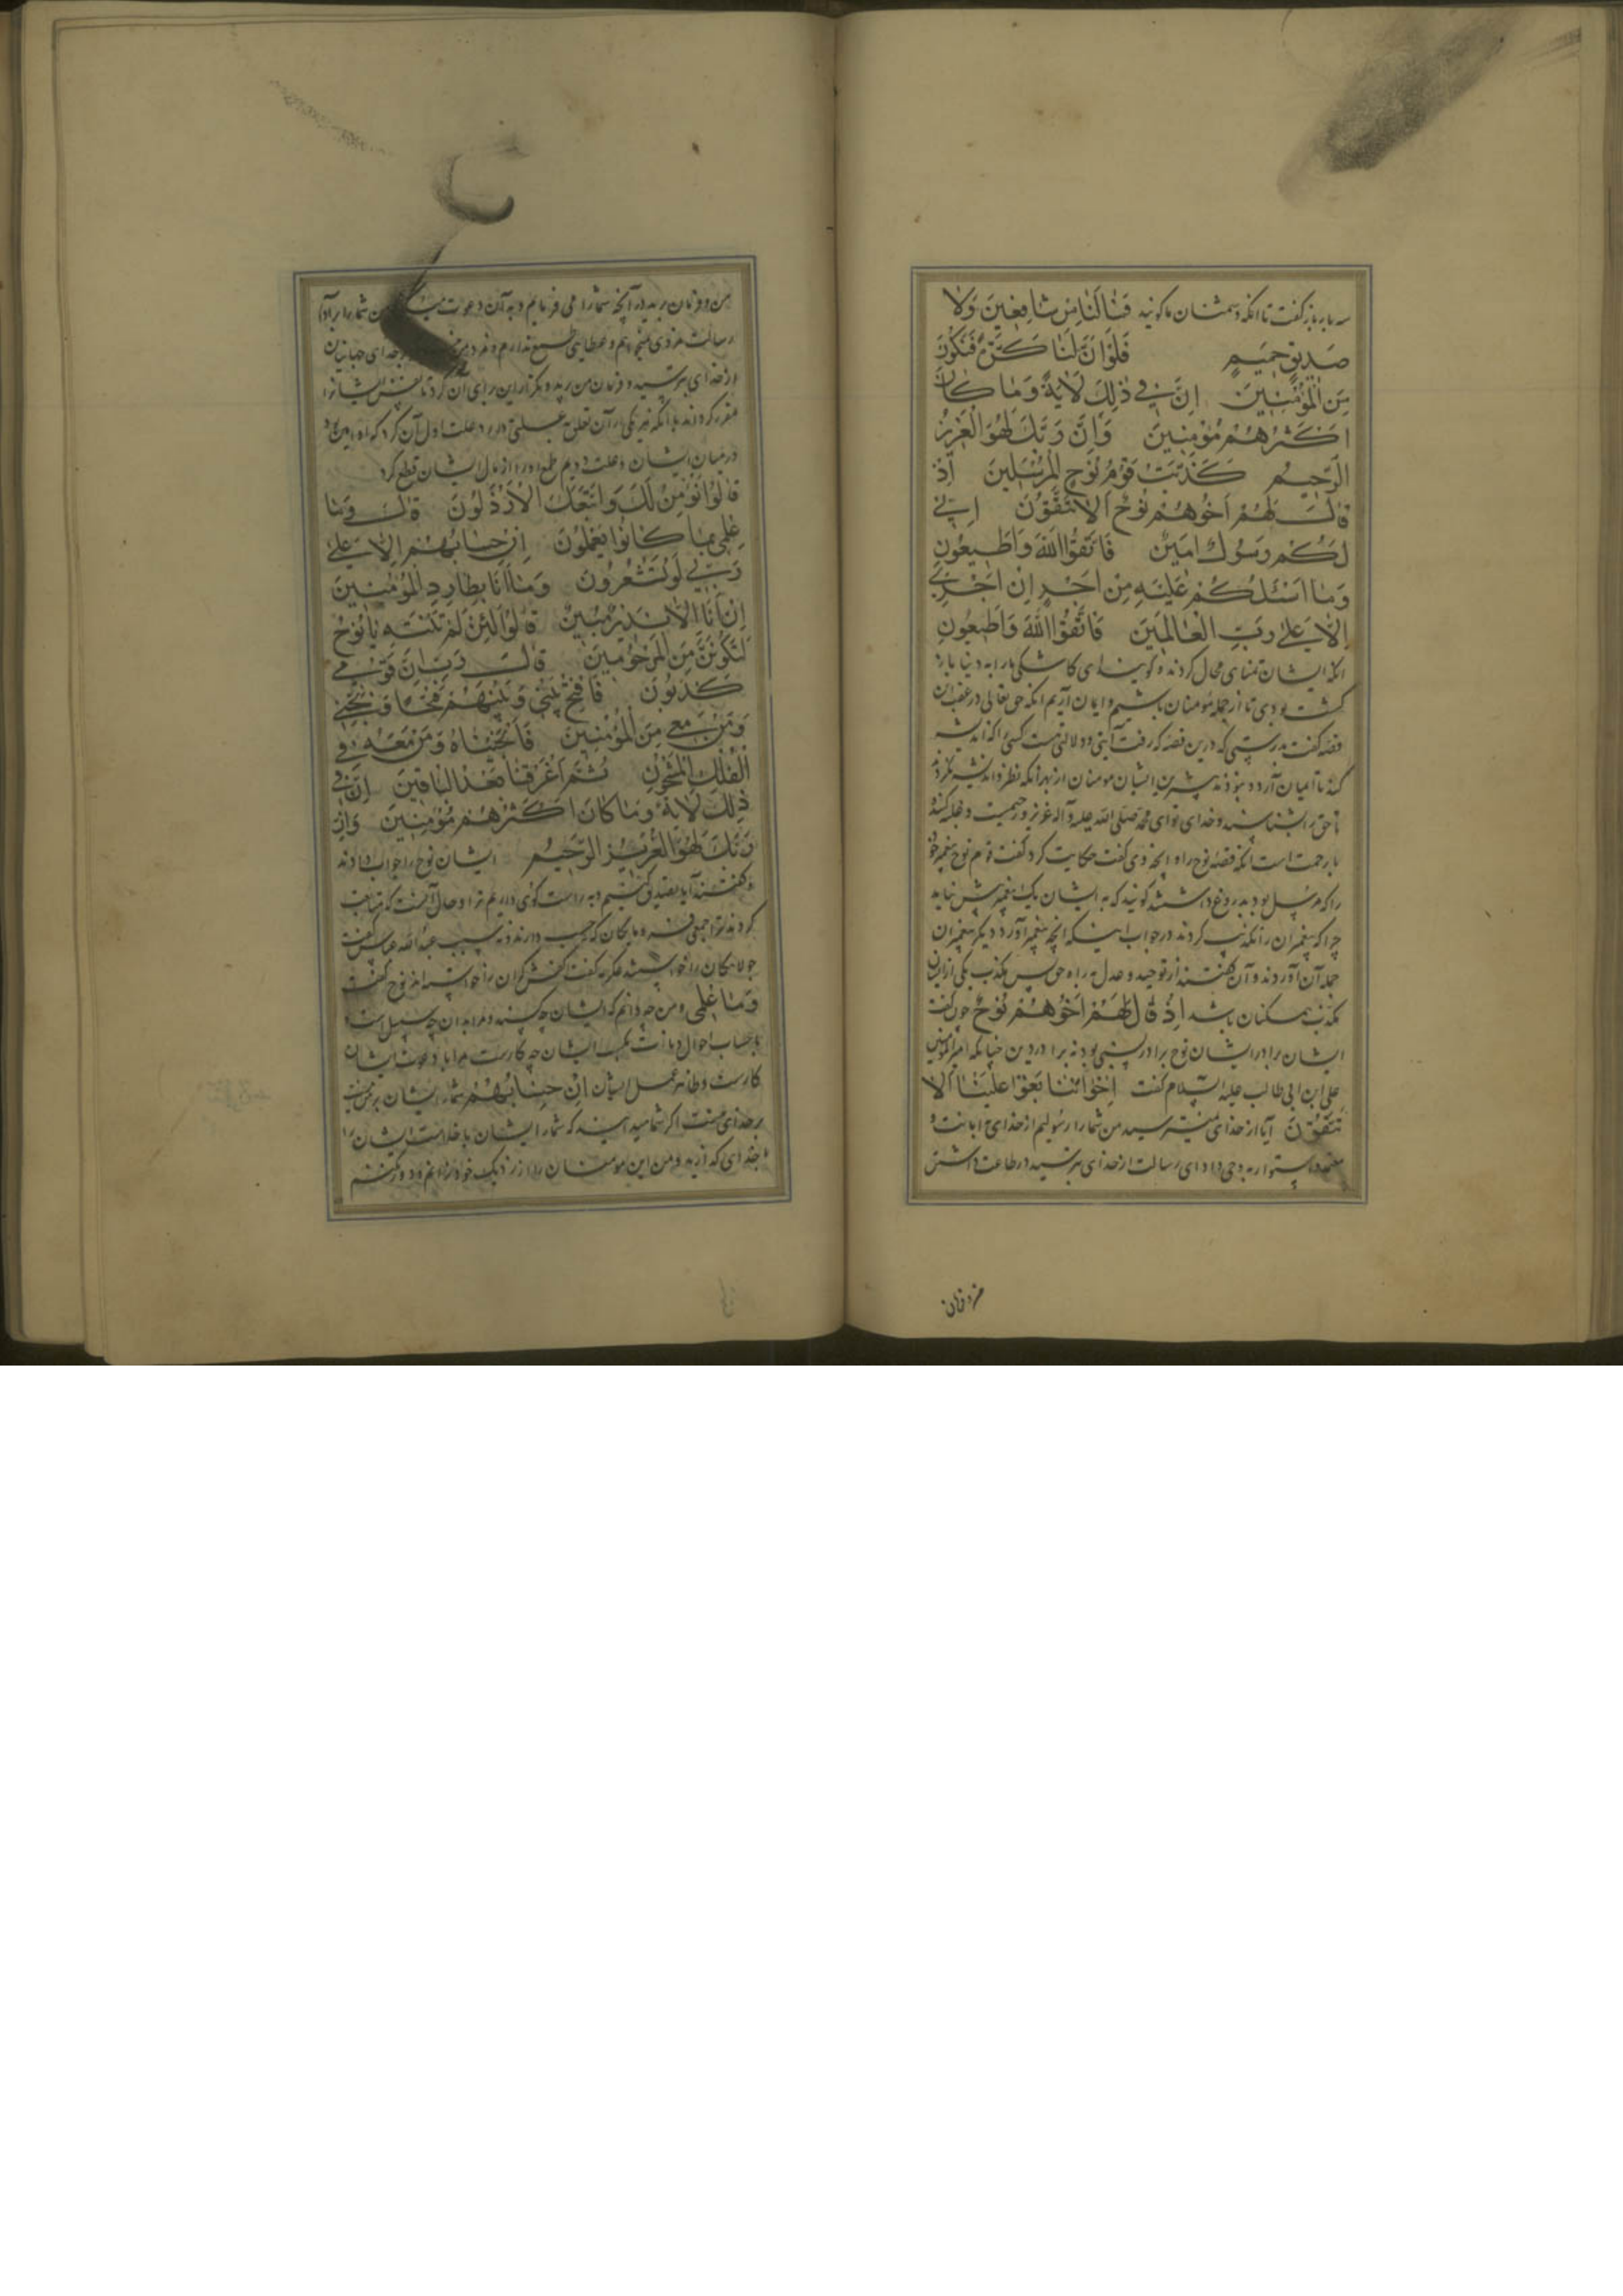 سه بار باز گفت تا آنکه دشمنان ما گویند فَمَا لَنَا مِنْ شَافِعِينَ وَلَا
صَدِيقٍ حَمِيمٍ فَلَوْ أَنَّ لَنَا كَرَّةً فَنَكُونَ
مِنَ الْمُؤْمِنِينَ إِنَّ فِي ذٰلِكَ لَآيَةً وَمَا كَانَ
أَكْثَرُهُمْ مُؤْمِنِينَ وَإِنَّ رَبَّكَ لَهُوَ الْعَزِيزُ
الرَّحِيمُ كَذَّبَتْ قَوْمُ نُوحٍ الْمُرْسَلِينَ إِذْ
قَالَ لَهُمْ أَخُوهُمْ نُوحٌ أَلَا تَتَّقُونَ إِنِّي
لَكُمْ رَسُولٌ أَمِينٌ فَاتَّقُوا اللّٰهَ وَأَطِيعُونِ
وَمَا أَسْئَلُكُمْ عَلَيْهِ مِنْ أَجْرٍ إِنْ أَجْرِيَ
إِلَّا عَلَىٰ رَبِّ الْعَالَمِينَ فَاتَّقُوا اللّٰهَ وَأَطِيعُونِ
آنکه ایشان تمنای محال کردند و گویند ای کاشکی ما را به دنیا باز
گشت بودی تا از جمله مؤمنان باشیم و ایمان آریم آنکه حق تعالی در عقب این
قصه گفت بدرستی که درین قصه که رفت آیتی و دلالتیست کسی را که اندیشه
کند تا ایمان آرد و نبودند بیشترین ایشان مومنان از بهر آنکه نظر و اندیشه نکردند
تا حق را بشناسند و خدای تو ای محمد صلی الله علیه و آله عزیز و رحیمست و غلبه کننده
با رحمت است آنکه قصه نوح را و آنچه وی گفت حکایت کرد گفت قوم نوح پیغمبر خود
را که مرسل بود بدروغ داشتند گویند که به ایشان یک پیغمبر بیش نیامد
چرا که پیغمبران را تکذیب کردند در جواب اینکه آنچه پیغمبر آورد دیگر پیغمبران
جمله آن آوردند و آن گفتند از توحید و عدل و راه حق پس تکذیب یکی از ایشان
تکذیب همکنان باشد إِذْ قَالَ لَهُمْ أَخُوهُمْ نُوحٌ چون گفت
ایشان را برادر ایشان نوح برادر نسبی بود نه برادر دین چنانکه امیرالمؤمنین
علی ابن ابی طالب علیه السلام گفت إِخْوَانُنَا بَغَوْا عَلَيْنَا أَلَا
تَتَّقُونَ آیا از خدای نمیترسید من شما را رسولیم از خدای با امانت و
معتمد و استوار بر وحی و ادای رسالت از خدای بترسید در طاعت داشتن
من و فرمان برید در آنچه شما را می فرمایم و به آن دعوت من شما را بر ادای
رسالت مزدی نمیخواهم و عطایی طمع ندارم و مزد من خدای جهانیان
از خدای بترسید و فرمان من برید و تکرار این برای آن کرد تا ایشان را
مقرر گرداند با آنکه هر یکی را از آن تعلق به علتی دارد علت اول آن کرد که او امین بود
در میان ایشان و علت دویم طمع او را از مال ایشان قطع کرد
قَالُوا أَنُؤْمِنُ لَكَ وَاتَّبَعَكَ الْأَرْذَلُونَ قَالَ وَمَا
عِلْمِي بِمَا كَانُوا يَعْمَلُونَ إِنْ حِسَابُهُمْ إِلَّا عَلَىٰ
رَبِّي لَوْ تَشْعُرُونَ وَمَا أَنَا بِطَارِدِ الْمُؤْمِنِينَ
إِنْ أَنَا إِلَّا نَذِيرٌ مُبِينٌ قَالُوا لَئِنْ لَمْ تَنْتَهِ يَا نُوحُ
لَتَكُونَنَّ مِنَ الْمَرْجُومِينَ قَالَ رَبِّ إِنَّ قَوْمِي
كَذَّبُونِ فَافْتَحْ بَيْنِي وَبَيْنَهُمْ فَتْحًا وَنَجِّنِي
وَمَنْ مَعِيَ مِنَ الْمُؤْمِنِينَ فَأَنْجَيْنَاهُ وَمَنْ مَعَهُ فِي
الْفُلْكِ الْمَشْحُونِ ثُمَّ أَغْرَقْنَا بَعْدُ الْبَاقِينَ إِنَّ فِي
ذٰلِكَ لَآيَةً وَمَا كَانَ أَكْثَرُهُمْ مُؤْمِنِينَ وَإِنَّ
رَبَّكَ لَهُوَ الْعَزِيزُ الرَّحِيمُ ایشان نوح را جواب دادند
و گفتند آیا تصدیق کنیم و به راست گوی داریم ترا و حال آنست که متابعت
کردند ترا جمعی فرومایکان که حسب ندارند و نسب عبد الله عباس گفت
جولاهکان را خواستند عکرمه گفت کفش گران را خواستند نوح گفت
وَمَا عِلْمِي و من چه دانم که ایشان چه کنند و مرا بدان چه سبیل است
با حساب احوال دیانت و کسب ایشان چه کارست مرا با دعوت ایشان
کارست و ظاهر عمل ایشان إِنْ حِسَابُهُمْ شمار ایشان بر من نیست
بر خدای منست اگر شما میدانید که شمار ایشان با خداست ایشان را
خدای که آفریده و من این مومنان را از نزدیک خود نرانم و دور نکنم